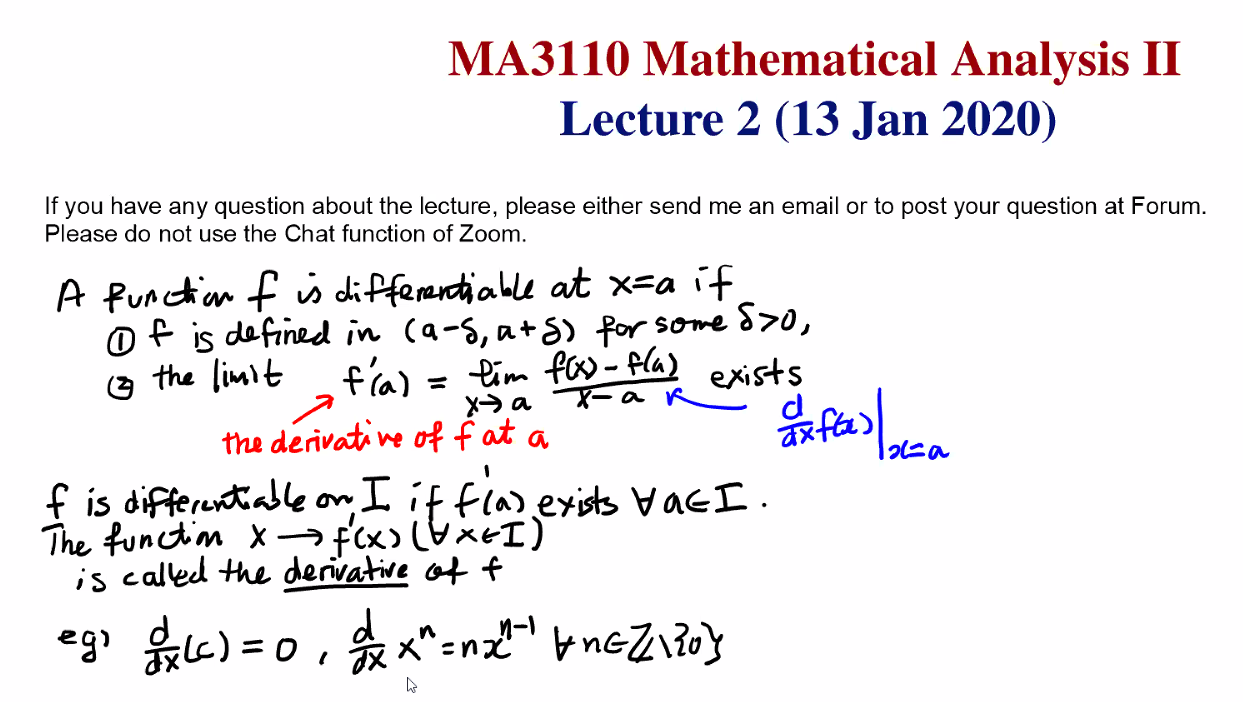 MA3110 Mathematical Analysis II
Lecture 2 (13 Jan 2020)
If you have any question about the lecture, please either send me an email or to post your question at Forum.
Please do not use the Chat function of Zoom.
A function f is differentiable at x=a if
① f is defined in (a-δ, a+δ) for some δ>0,
② the limit f'(a) = lim x→a (f(x) - f(a))/(x-a) exists
d/dx f(x)|x=a
the derivative of f at a
f is differentiable on I if f'(a) exists ∀ a∈I.
The function x → f'(x) (∀ x∈I)
is called the derivative of f
eg) d/dx (c) = 0, d/dx xⁿ = nxⁿ⁻¹ ∀ n∈ℤ\{0}